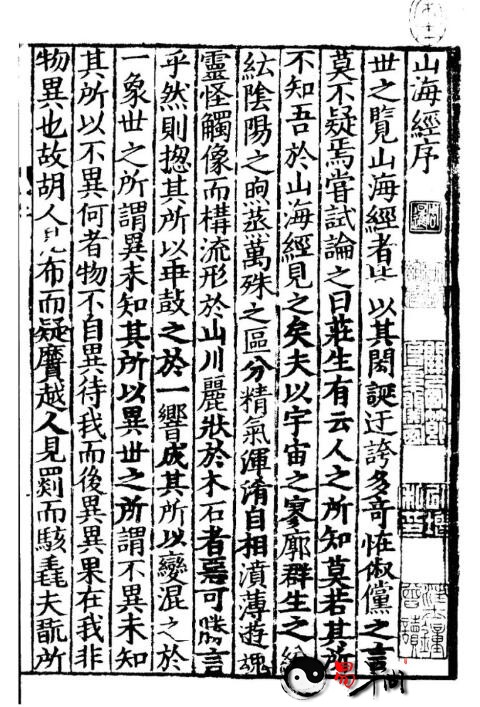 山海經序
世之覽山海經者皆以其閎誕迂誇多奇恠俶儻之言
莫不疑焉嘗試論之曰莊生有云人之所知莫若其所
不知吾於山海經見之矣夫以宇宙之寥廓群生之紛
紜陰陽之煦蒸萬殊之區分精氣渾淆自相濆薄遊魂
靈怪觸像而構流形於山川麗狀於木石者惡可勝言
乎然則揔其所以乖鼓之於一響成其所以變混之於
一象世之所謂異未知其所以異世之所謂不異未知
其所以不異何者物不自異待我而後異異果在我非
物異也故胡人見布而疑黂越人見罽而駭毳夫翫所